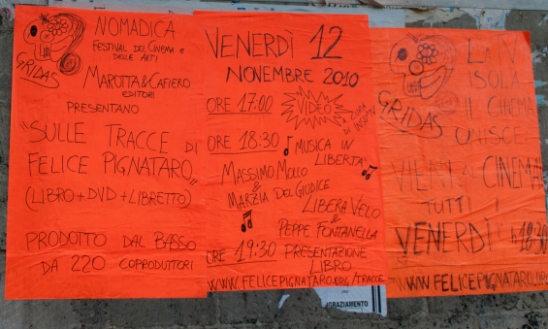 GRIDAS
NOMADICA
FESTIVAL DEL CINEMA E
DELLE ARTI
MAROTTA&CAFIERO
EDITORI
PRESENTANO
"SULLE TRACCE DI
FELICE PIGNATARO"
(LIBRO+DVD+LIBRETTO)
PRODOTTO DAL BASSO
DA 220 COPRODUTTORI
VENERDÌ 12
NOVEMBRE 2010
ORE 17:00 VIDEO
ORE 18:30 MUSICA IN
LIBERTÀ
MASSIMO MOLLO
&
MARZIA DEL GIUDICE
LIBERA VELO
&
PEPPE FONTANELLA
ORE 19:30 PRESENTAZIONE
LIBRO
WWW.FELICEPIGNATARO.ORG/TRACCE
GRIDAS
LA
ISOLA
IL CINEMA
UNISCE
VIENI AL CINEMA
TUTTI I
VENERDÌ h 18:30
WWW.FELICEPIGNATARO.